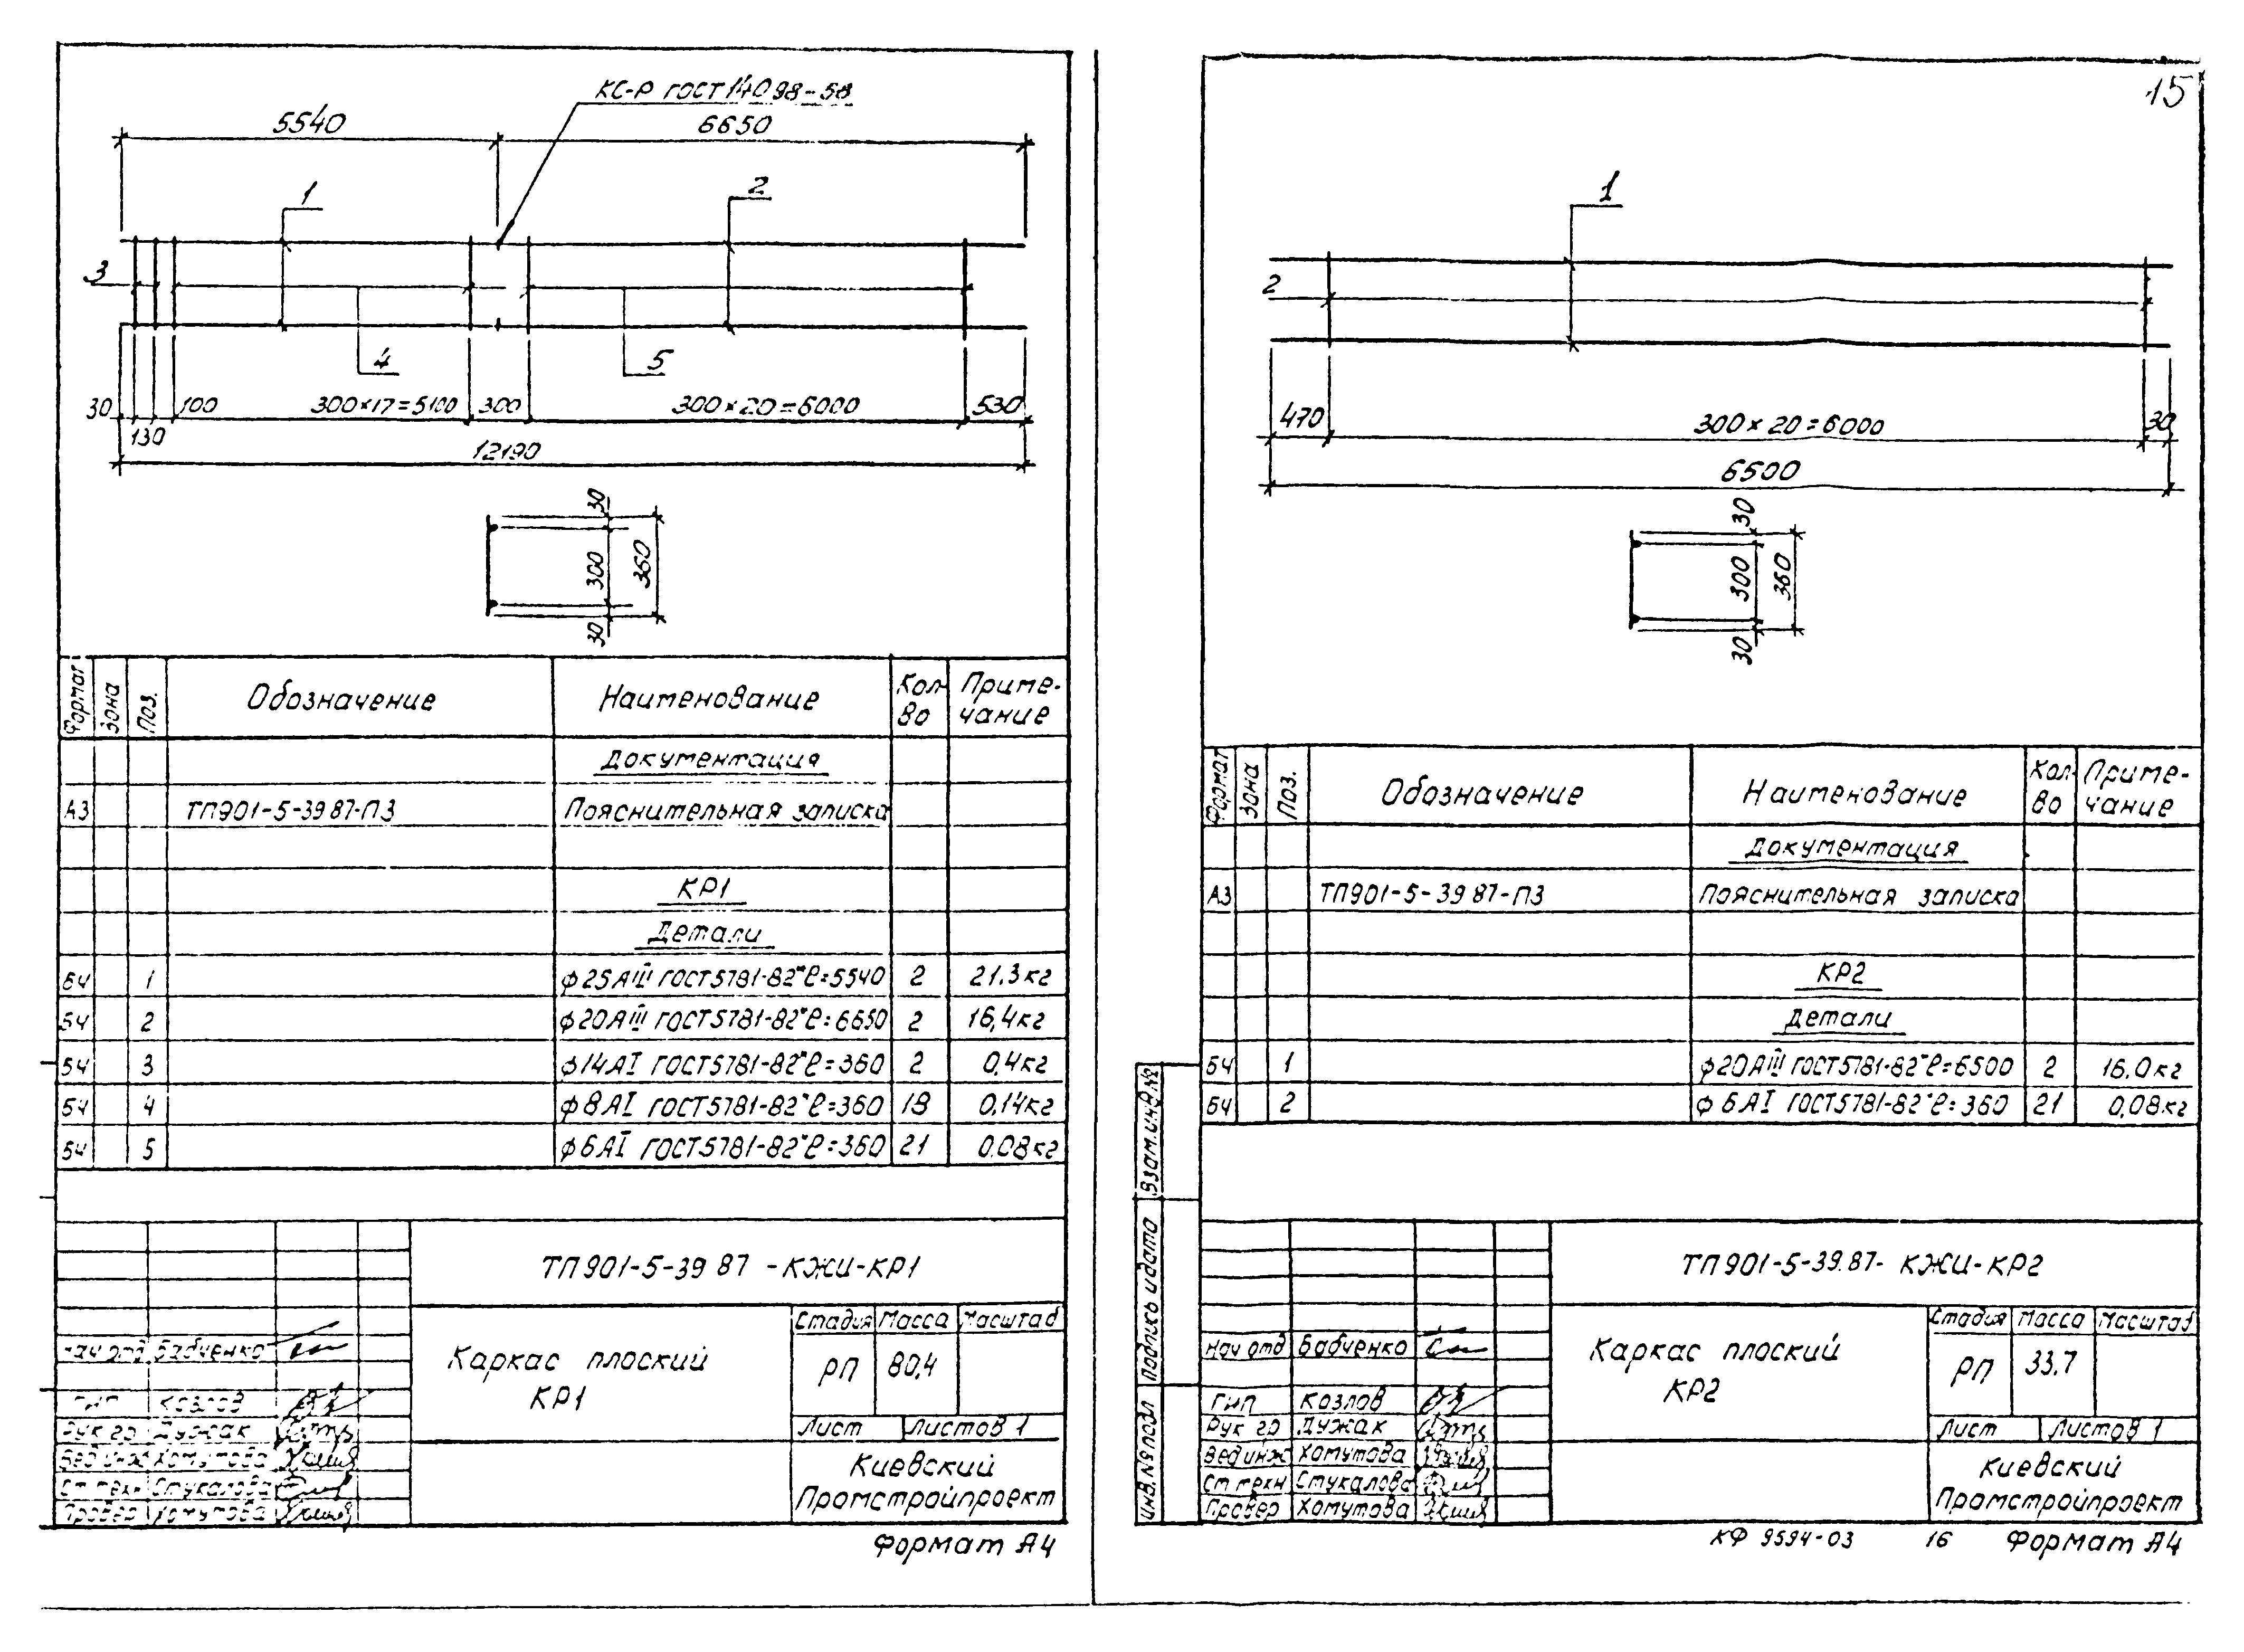 КС-Р ГОСТ 14098-
5540
6650
1
2
3
4
5
30
130
100
300×17=5100
300
300×20=6000
530
12190
30
300
360
30
Формат
Зона
Поз.
Обозначение
Наименование
Кол-во
Приме-чание
Документация
А3 ТП901-5-39 87-ПЗ Пояснительная записка
КР1
Детали
БЧ 1 ф25АIII ГОСТ5781-82* ℓ=5540 2 21.3кг
БЧ 2 ф20АIII ГОСТ5781-82* ℓ=6650 2 16,4кг
БЧ 3 ф14АI ГОСТ5781-82* ℓ=360 2 0,4кг
БЧ 4 ф8АI ГОСТ5781-82* ℓ=360 18 0,14кг
БЧ 5 ф6АI ГОСТ5781-82* ℓ=360 21 0.08кг
ТП901-5-39 87 -КЖИ-КР1
Нач отд Бабченко
ГИП Козлов
Рук гр Дужак
Вед инж Хомутова
Ст техн Стукалова
Провер Хомутова
Каркас плоский
КР1
Стадия Масса Масштаб
РП 80,4
Лист Листов 1
Киевский
Промстройпроект
Формат А4
15
1
2
470
300×20=6000
30
6500
30
300
360
30
Формат
Зона
Поз.
Обозначение
Наименование
Кол-во
Приме-чание
Документация
А3 ТП901-5-39 87-ПЗ Пояснительная записка
КР2
Детали
БЧ 1 ф20АIII ГОСТ5781-82* ℓ=6500 2 16.0кг
БЧ 2 ф6АI ГОСТ5781-82* ℓ=360 21 0,08кг
Взам.инв.№
Подпись и дата
Инв.№ подл
ТП901-5-39.87- КЖИ-КР2
Нач отд Бабченко
ГИП Козлов
Рук гр Дужак
Вед инж Хомутова
Ст техн Стукалова
Провер Хомутова
Каркас плоский
КР2
Стадия Масса Масштаб
РП 33.7
Лист Листов 1
Киевский
Промстройпроект
КФ 9594-03 16 Формат А4